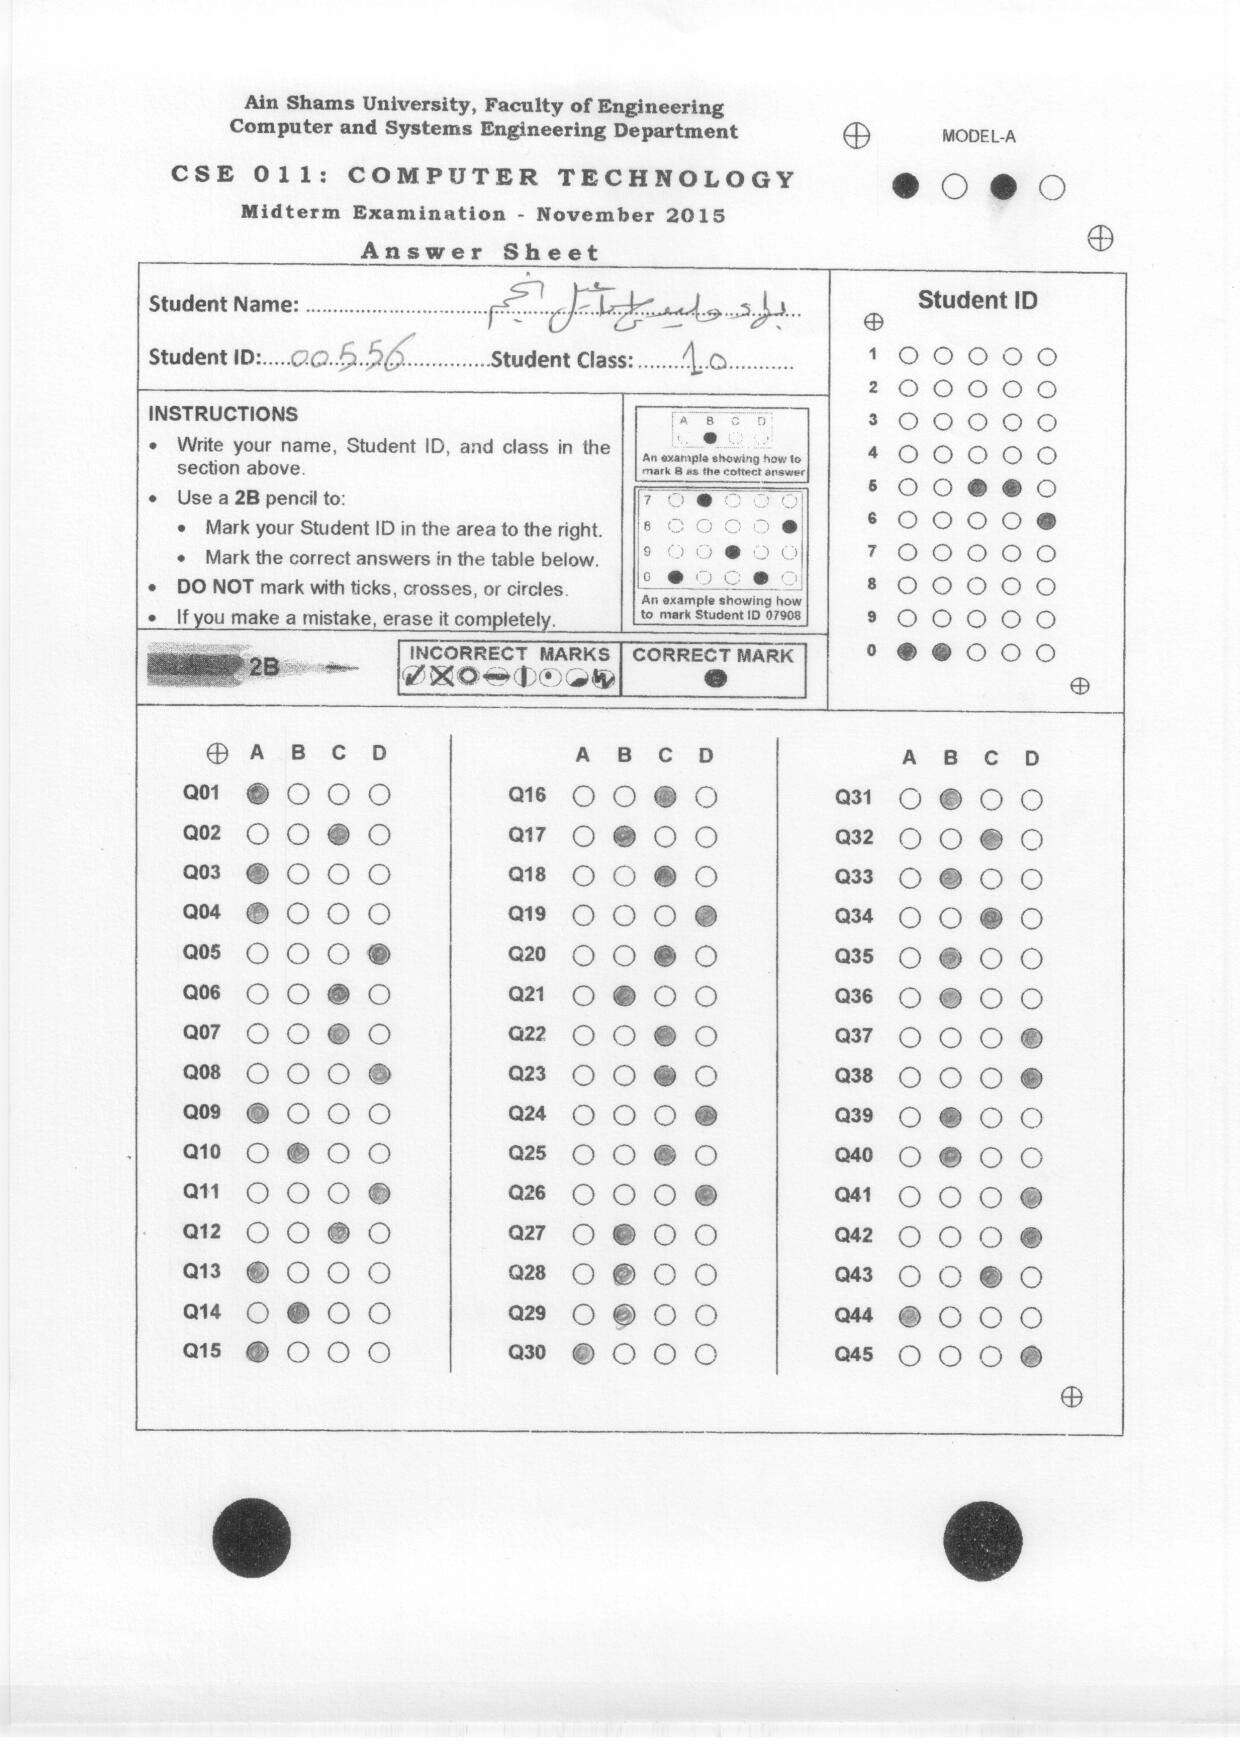 Ain Shams University, Faculty of Engineering
Computer and Systems Engineering Department
MODEL-A
CSE 011: COMPUTER TECHNOLOGY
Midterm Examination - November 2015
Answer Sheet
Student Name:
Student ID: 00556 Student Class: 10
INSTRUCTIONS
• Write your name, Student ID, and class in the
section above.
• Use a 2B pencil to:
• Mark your Student ID in the area to the right.
• Mark the correct answers in the table below.
• DO NOT mark with ticks, crosses, or circles.
• If you make a mistake, erase it completely.
A B C D
An example showing how to
mark B as the cottect answer
7
8
9
0
An example showing how
to mark Student ID 07908
2B
INCORRECT MARKS
CORRECT MARK
Student ID
1
2
3
4
5
6
7
8
9
0
A B C D
Q01
Q02
Q03
Q04
Q05
Q06
Q07
Q08
Q09
Q10
Q11
Q12
Q13
Q14
Q15
A B C D
Q16
Q17
Q18
Q19
Q20
Q21
Q22
Q23
Q24
Q25
Q26
Q27
Q28
Q29
Q30
A B C D
Q31
Q32
Q33
Q34
Q35
Q36
Q37
Q38
Q39
Q40
Q41
Q42
Q43
Q44
Q45